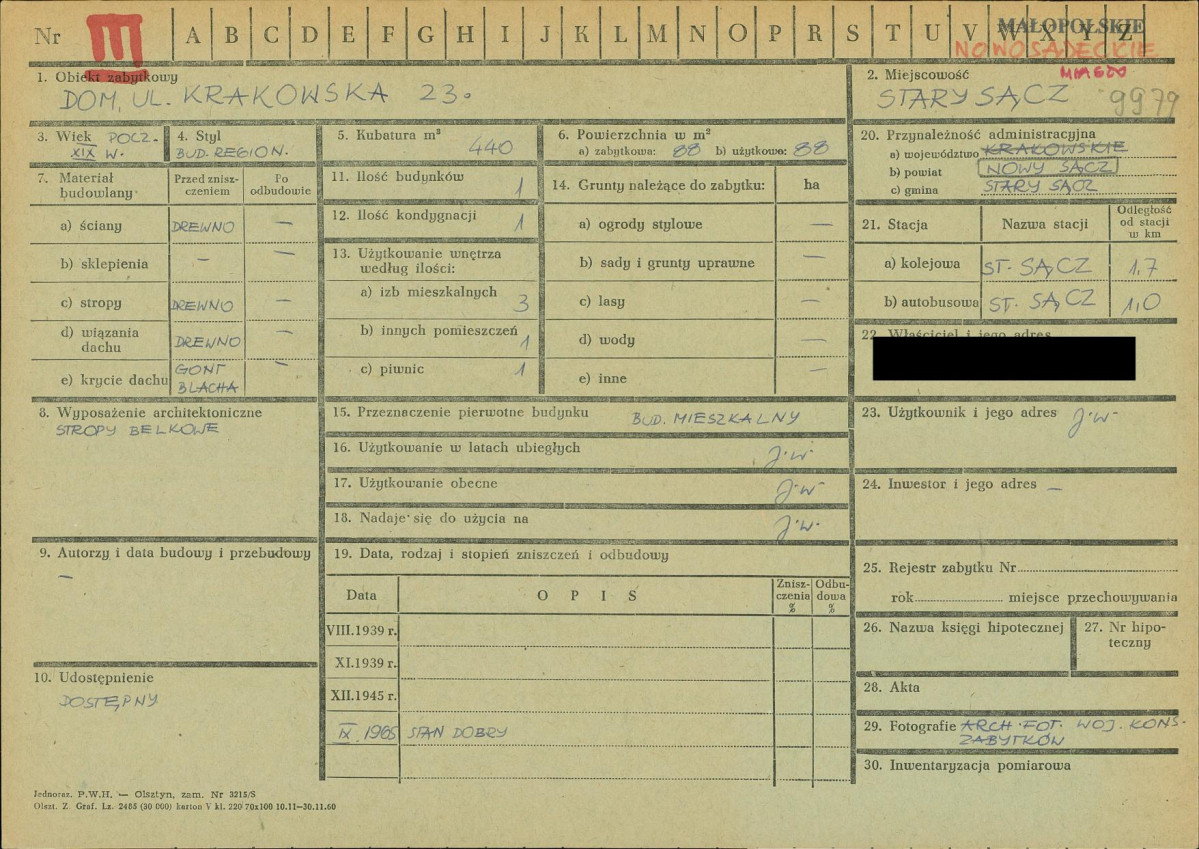 Nr III A B C D E F G H I J K L M N O P R S T U V W X Y Z
MAŁOPOLSKIE
NOWOSĄDECKIE
MIASTO
1. Obiekt zabytkowy
DOM, UL. KRAKOWSKA 23.
2. Miejscowość
STARY SĄCZ 9979
3. Wiek POCZ.
XIX W.
4. Styl
BUD. REGION.
5. Kubatura m³
440
6. Powierzchnia w m²
a) zabytkowa: 88 b) użytkowa: 88
7. Materiał budowlany
Przed znisz-
czeniem
Po
odbudowie
a) ściany DREWNO —
b) sklepienia — —
c) stropy DREWNO —
d) wiązania
dachu DREWNO —
e) krycie dachu GONT
BLACHA —
8. Wyposażenie architektoniczne
STROPY BELKOWE
9. Autorzy i data budowy i przebudowy
—
10. Udostępnienie
DOSTĘPNY
11. Ilość budynków 1
12. Ilość kondygnacji 1
13. Użytkowanie wnętrza
według ilości:
a) izb mieszkalnych 3
b) innych pomieszczeń 1
c) piwnic 1
14. Grunty należące do zabytku: ha
a) ogrody stylowe —
b) sady i grunty uprawne —
c) lasy —
d) wody —
e) inne —
15. Przeznaczenie pierwotne budynku BUD. MIESZKALNY
16. Użytkowanie w latach ubiegłych J.W.
17. Użytkowanie obecne J.W.
18. Nadaje się do użycia na J.W.
19. Data, rodzaj i stopień zniszczeń i odbudowy
Data O P I S Znisz-
czenia
% Odbu-
dowa
%
VIII.1939 r.
XI.1939 r.
XII.1945 r.
IX. 1965 STAN DOBRY
20. Przynależność administracyjna
a) województwo KRAKOWSKIE
b) powiat NOWY SĄCZ
c) gmina STARY SĄCZ
21. Stacja Nazwa stacji Odległość
od stacji
w km
a) kolejowa ST. SĄCZ 1,7
b) autobusowa ST. SĄCZ 1,0
22. Właściciel i jego adres
23. Użytkownik i jego adres J.W.
24. Inwestor i jego adres —
25. Rejestr zabytku Nr
rok miejsce przechowywania
26. Nazwa księgi hipotecznej
27. Nr hipo-
teczny
28. Akta
29. Fotografie ARCH. FOT. WOJ. KONS.
ZABYTKÓW
30. Inwentaryzacja pomiarowa
Jednoraz. P.W.H. — Olsztyn, zam. Nr 3215/S
Olszt. Z. Graf. Lz. 2455 (30 000) karton V kl. 220 70x100 10.11—30.11.60